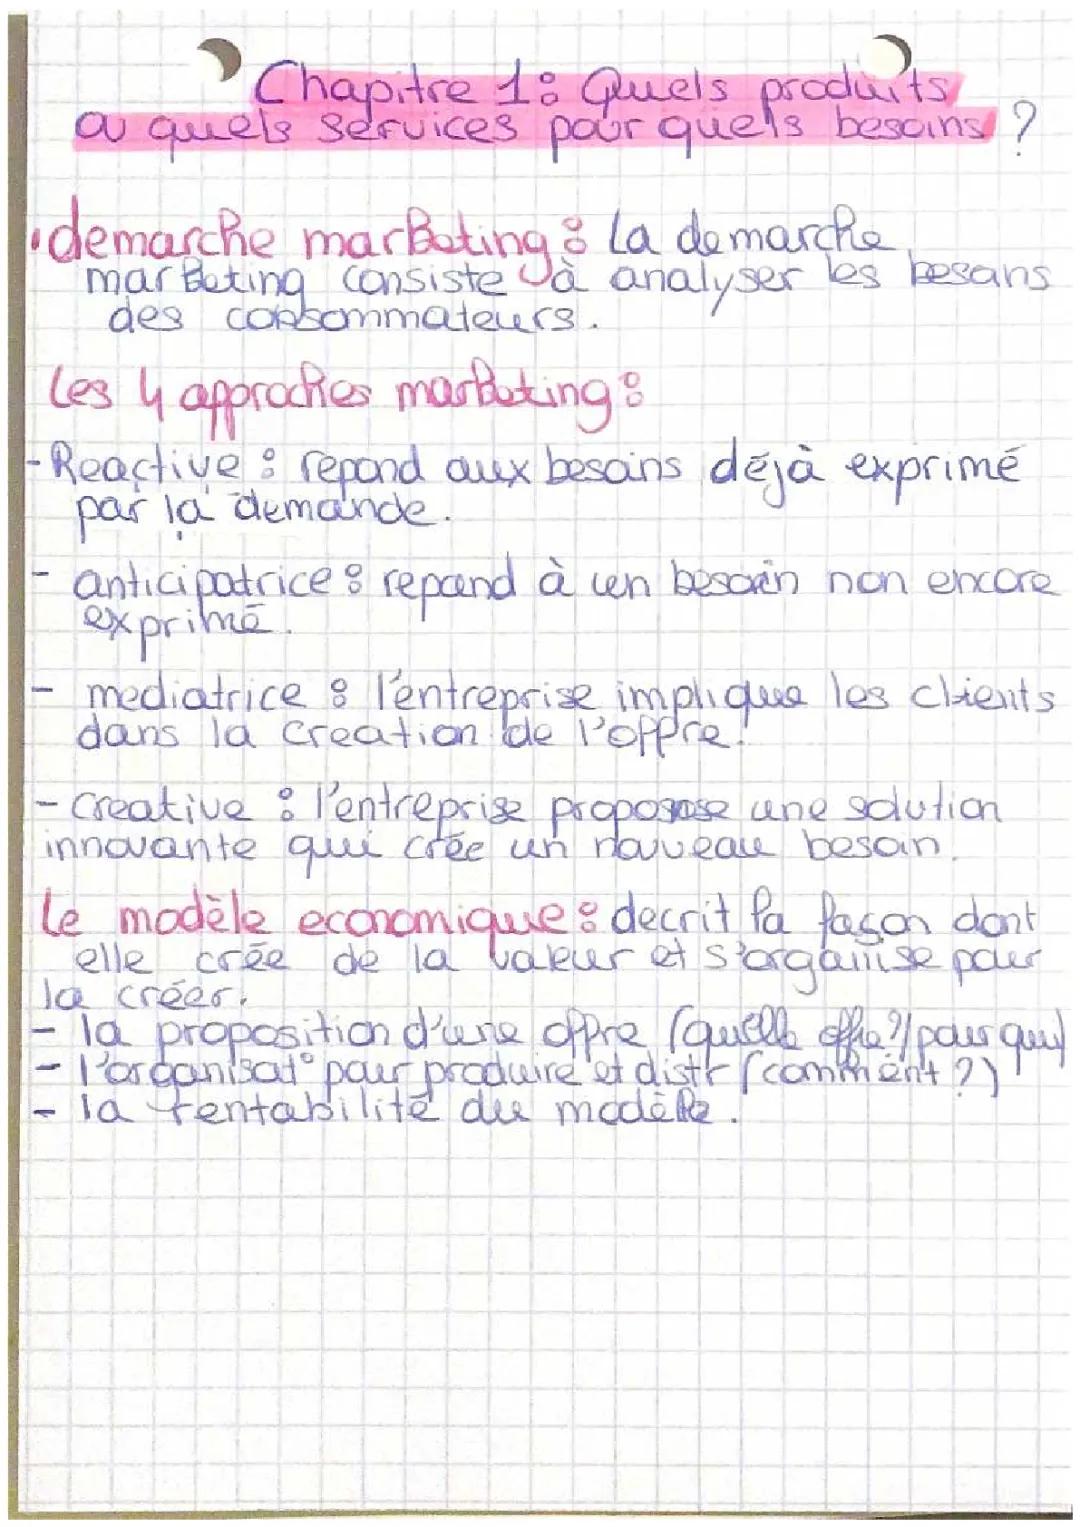 Chapitre 1: Quels produits
ou quels services pour quels besoins ?
• demarche marketing : La demarche
marketing consiste à analyser les besoins
des consommateurs.
Les 4 approches marketing :
- Reactive : repond aux besoins déjà exprimé
par la demande.
- anticipatrice : repond à un besoin non encore
exprimé.
- mediatrice : l'entreprise implique les clients
dans la creation de l'offre.
- Creative : l'entreprise propose une solution
innovante qui crée un nouveau besoin.
Le modèle economique : decrit la façon dont
elle crée de la valeur et s'organise pour
la créer.
- la proposition d'une offre (quelle offre?/pour qui)
- l'organisat° pour produire et distr (comment ?)
- la rentabilité du modèle.